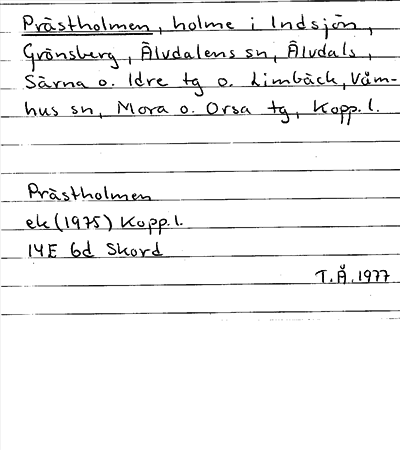 Prästholmen, holme i Indsjön,
Grönsberg, Älvdalens sn, Älvdals,
Särna o. Idre tg o. Limbäck, Våm-
hus sn, Mora o. Orsa tg, Kopp. l.
Prästholmen
ek (1975) Kopp. l.
14E 6d Skord
T.Å. 1977